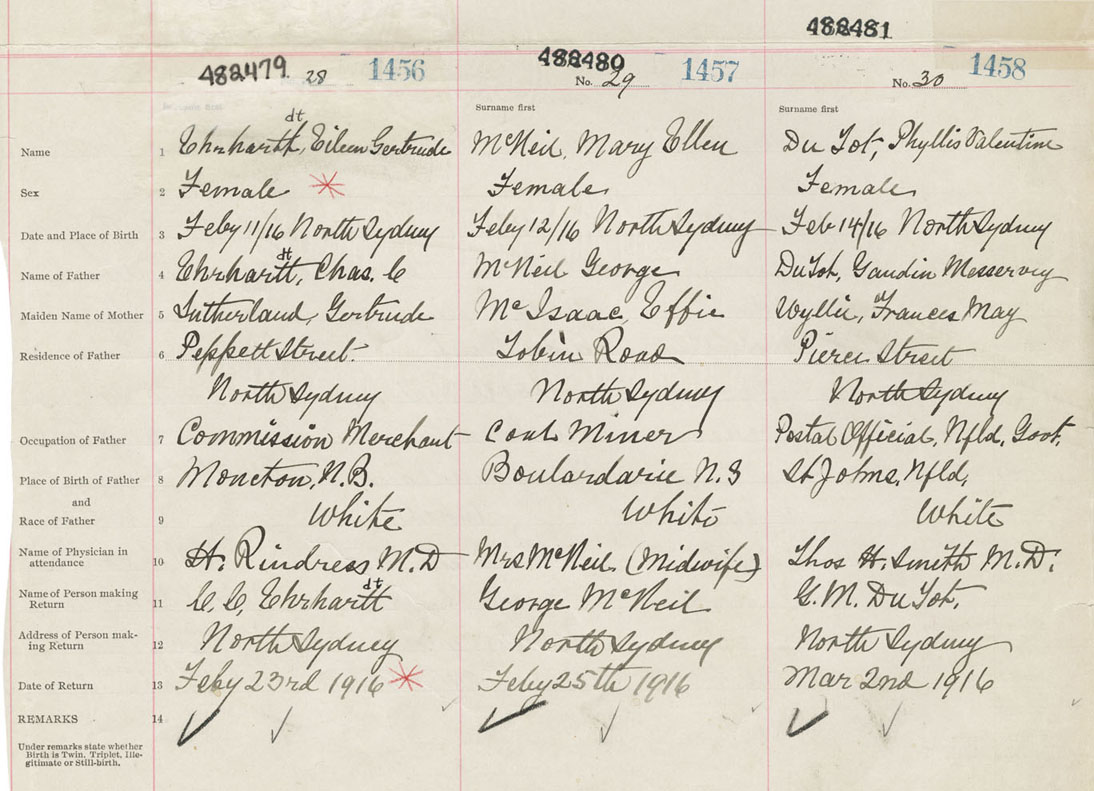 482481
482479 28 1456
482480 No. 29 1457
No. 30 1458
Surname first
Surname first
dt
Name 1 Ehrhartt, Eileen Gertrude McNeil, Mary Ellen Du Tot, Phyllis Valentine
Sex 2 Female Female Female
Date and Place of Birth 3 Feby 11/16 North Sydney Feby 12/16 North Sydney Feb 14/16 North Sydney
dt
Name of Father 4 Ehrhartt, Chas. C McNeil George DuTot, Gaudin Messervey
Maiden Name of Mother 5 Sutherland, Gertrude McIsaac, Effie Wyllie, Frances May
Residence of Father 6 Peppett Street. Tobin Road Pierce Street
North Sydney North Sydney North Sydney
Occupation of Father 7 Commission Merchant Coal Miner Postal Official, Nfld, Govt.
Place of Birth of Father 8 Moncton, N.B. Boulardarie N.S St Johns, Nfld,
and
Race of Father 9 White White White
Name of Physician in
attendance 10 H. Rindress M.D Mrs McNeil (Midwife) Thos H. Smith M.D.
dt
Name of Person making
Return 11 C. C. Ehrhartt George McNeil G. M. Du Tot,
Address of Person mak-
ing Return 12 North Sydney North Sydney North Sydney
Date of Return 13 Feby 23rd 1916 Feby 25th 1916 Mar 2nd 1916
REMARKS 14
Under remarks state whether
Birth is Twin, Triplet, Ille-
gitimate or Still-birth.